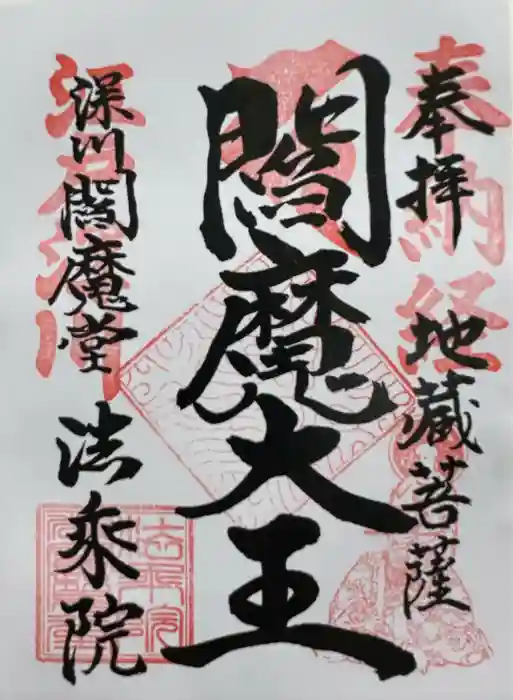 奉拝
地蔵菩薩
閻魔大王
深川閻魔堂
法乘院
奉納経